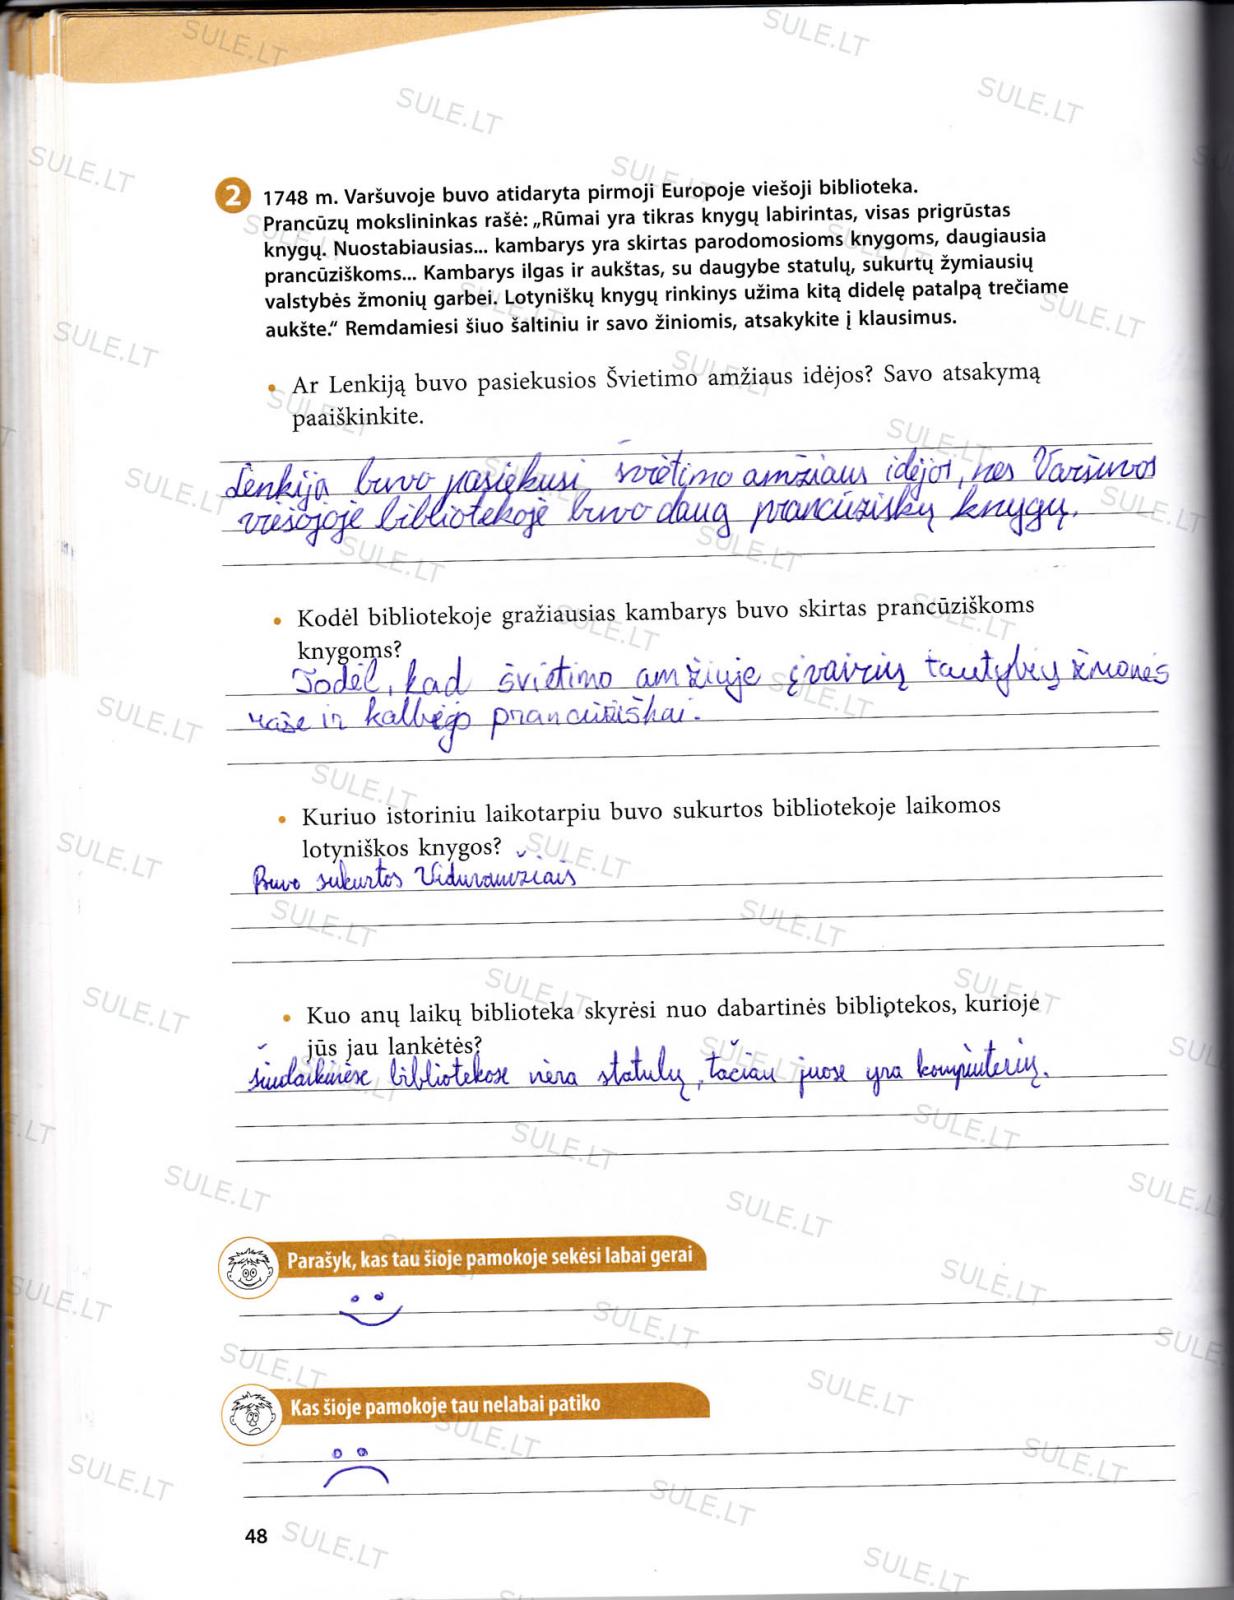 2 1748 m. Varšuvoje buvo atidaryta pirmoji Europoje viešoji biblioteka.
Prancūzų mokslininkas rašė: „Rūmai yra tikras knygų labirintas, visas prigrūstas
knygų. Nuostabiausias... kambarys yra skirtas parodomosioms knygoms, daugiausia
prancūziškoms... Kambarys ilgas ir aukštas, su daugybe statulų, sukurtų žymiausių
valstybės žmonių garbei. Lotyniškų knygų rinkinys užima kitą didelę patalpą trečiame
aukšte.“ Remdamiesi šiuo šaltiniu ir savo žiniomis, atsakykite į klausimus.
• Ar Lenkiją buvo pasiekusios Švietimo amžiaus idėjos? Savo atsakymą
paaiškinkite.
Lenkiją buvo pasiekusi švietimo amžiaus idėjos, nes Varšuvos
viešojoje bibliotekoje buvo daug prancūziškų knygų.
• Kodėl bibliotekoje gražiausias kambarys buvo skirtas prancūziškoms
knygoms?
Todėl, kad švietimo amžiuje įvairių tautybių žmonės
rašė ir kalbėjo prancūziškai.
• Kuriuo istoriniu laikotarpiu buvo sukurtos bibliotekoje laikomos
lotyniškos knygos?
Buvo sukurtos Viduramžiais
• Kuo anų laikų biblioteka skyrėsi nuo dabartinės bibliotekos, kurioje
jūs jau lankėtės?
šiuolaikinėse bibliotekose nėra statulų, tačiau juose yra kompiuterių.
Parašyk, kas tau šioje pamokoje sekėsi labai gerai
Kas šioje pamokoje tau nelabai patiko
48
SULE.LT